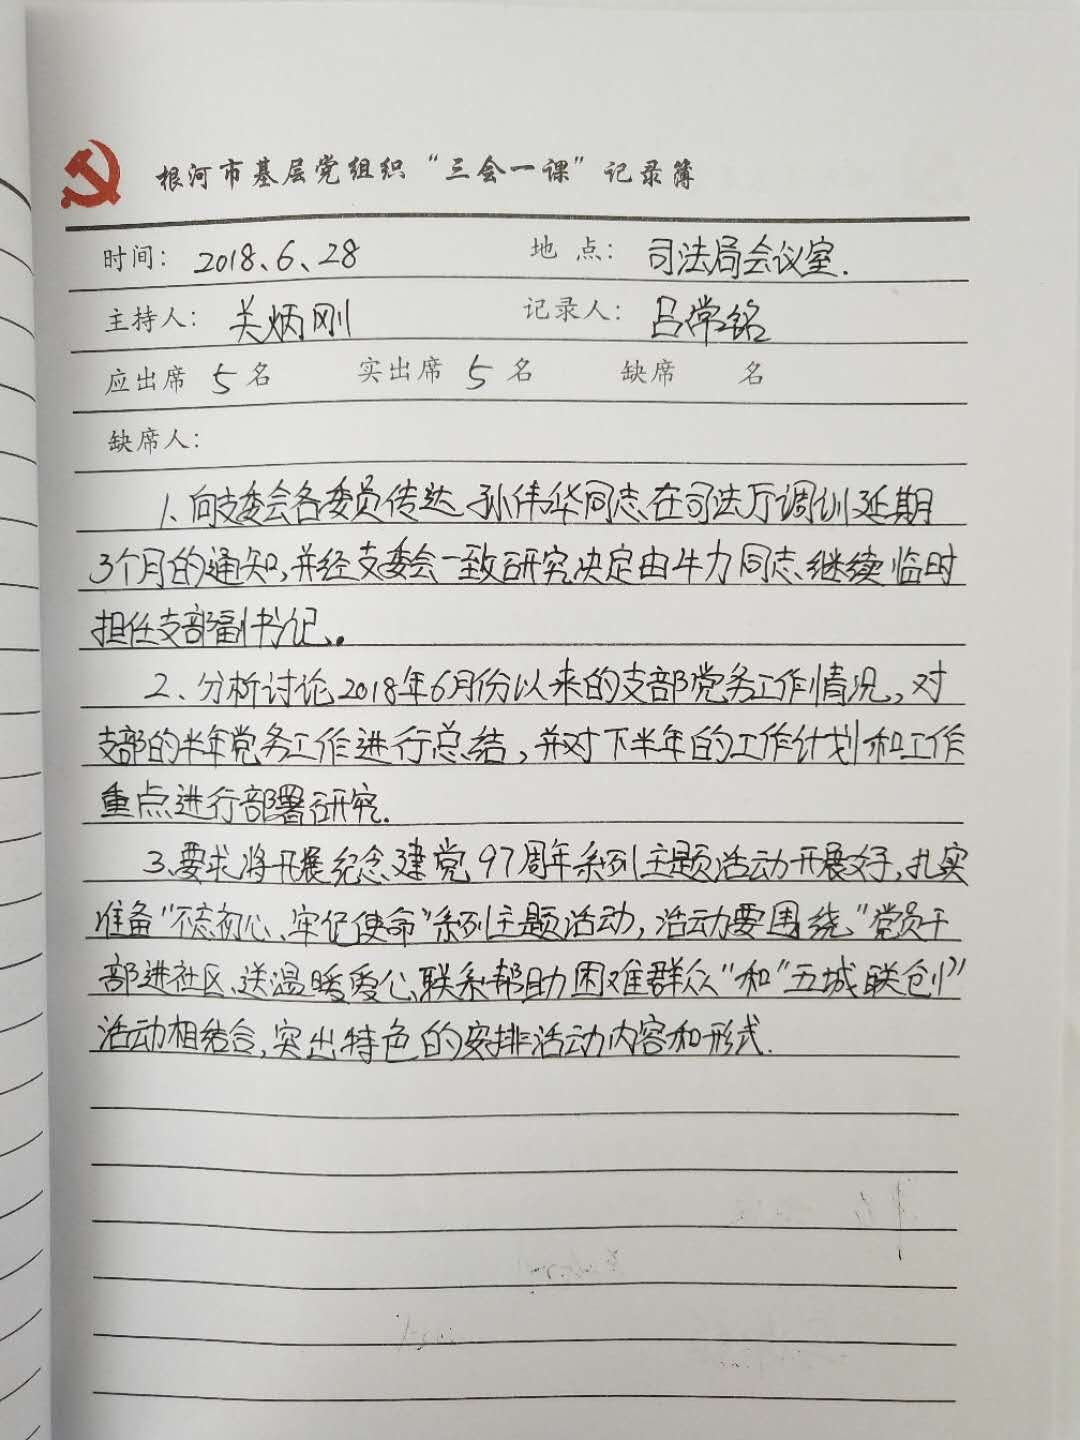 根河市基层党组织“三会一课”记录簿
时间: 2018、6、28 地点: 司法局会议室.
主持人: 关炳刚 记录人: 吕常铭
应出席 5 名 实出席 5 名 缺席 名
缺席人:
1、向支委会各委员传达孙伟华同志在司法厅调训延期
3个月的通知,并经支委会一致研究决定由牛力同志继续临时
担任支部副书记。
2、分析讨论2018年6月份以来的支部党务工作情况,对
支部的半年党务工作进行总结,并对下半年的工作计划和工作
重点进行部署研究.
3、要求将开展纪念建党97周年系列主题活动开展好,扎实
准备“不忘初心、牢记使命”系列主题活动,活动要围绕“党员干
部进社区、送温暖爱心、联系帮助困难群众”和“五城联创”
活动相结合,突出特色的安排活动内容和形式.